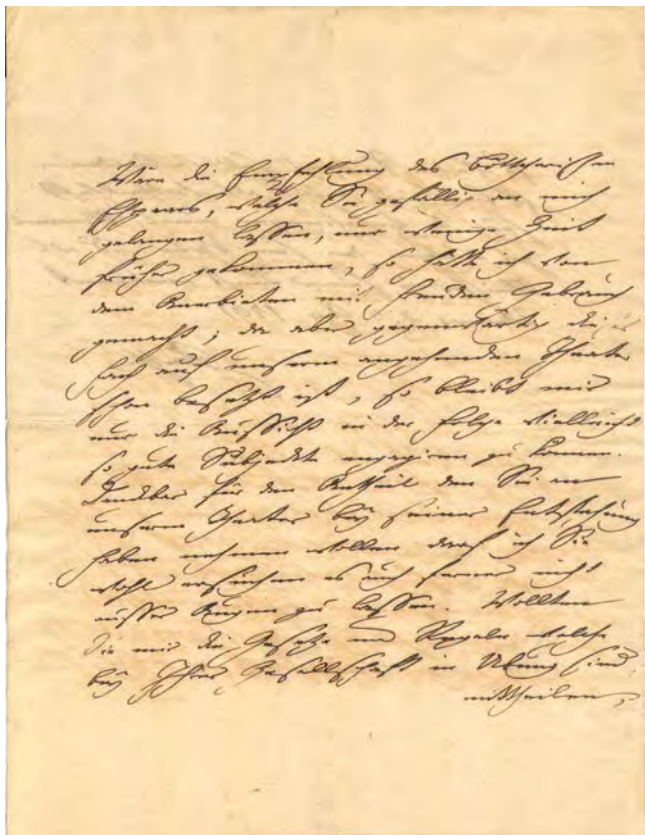 Wäre die Empfehlung des Böttcherischen
Ehpaars, welche Sie gefällig an mich
gelangen lassen, nur wenige Zeit
früher gekommen, so hätte ich von
dem Anerbieten mit Freuden Gebrauch
gemacht; da aber gegenwärtig dieses
Fach auf unserm angehenden Theater
schon besetzt ist, so bleibt mir
nur die Aussicht in der Folge vielleicht
so gute Subjeckte engagiren zu können.
Dankbar für den Antheil den Sie an
unserm Theater bey seiner Entstehung
haben nehmen wollen darf ich Sie
wohl ersuchen es auch ferner nicht
ausser Augen zu lassen. Wollten
Sie mir die Gesetze und Regeln welche
bey Ihrer Gesellschafft in Übung sind,
mittheilen,